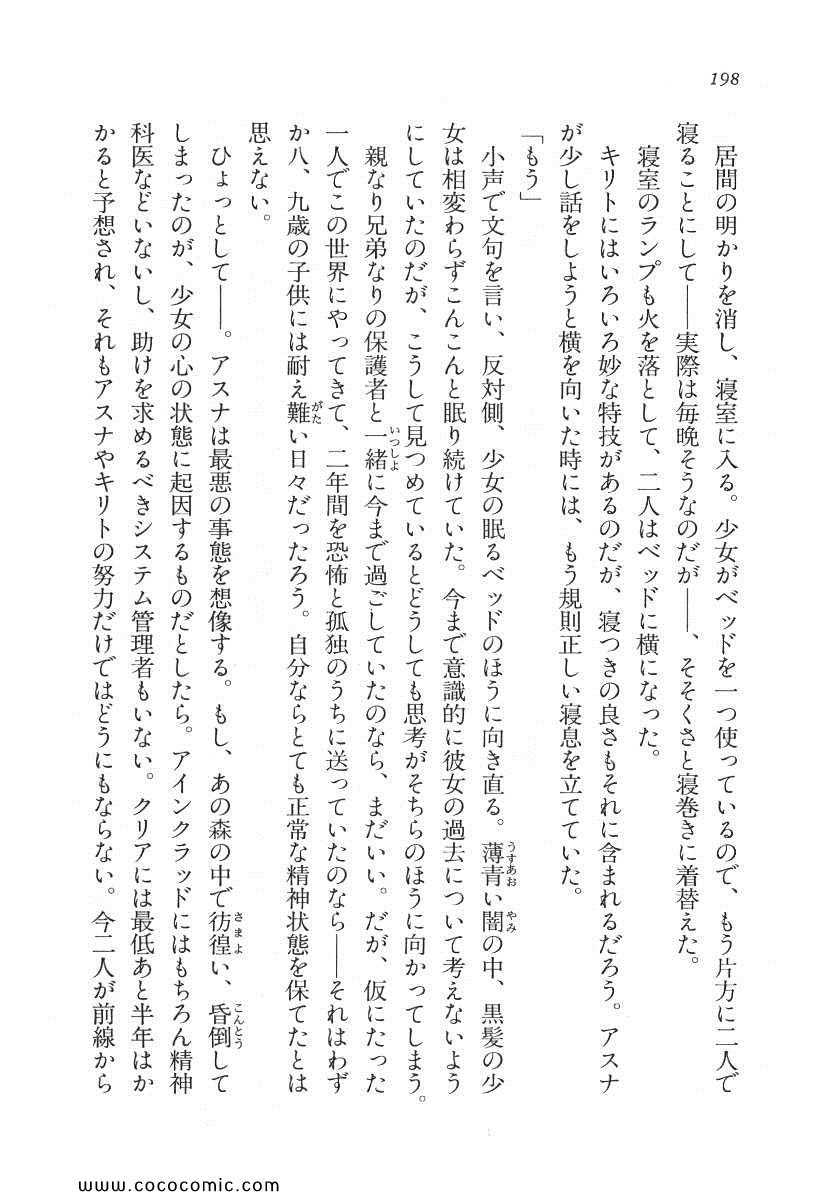 198
居間の明かりを消し、寝室に入る。少女がベッドを一つ使っているので、もう片方に二人で
寝ることにして――実際は毎晩そうなのだが――、そそくさと寝巻きに着替えた。
寝室のランプも火を落として、二人はベッドに横になった。
キリトにはいろいろ妙な特技があるのだが、寝つきの良さもそれに含まれるだろう。アスナ
が少し話をしようと横を向いた時には、もう規則正しい寝息を立てていた。
「もう」
小声で文句を言い、反対側、少女の眠るベッドのほうに向き直る。薄青い闇の中、黒髪の少
女は相変わらずこんこんと眠り続けていた。今まで意識的に彼女の過去について考えないよう
にしていたのだが、こうして見つめているとどうしても思考がそちらのほうに向かってしまう。
親なり兄弟なりの保護者と一緒に今まで過ごしていたのなら、まだいい。だが、仮にたった
一人でこの世界にやってきて、二年間を恐怖と孤独のうちに送っていたのなら――それはわず
か八、九歳の子供には耐え難い日々だったろう。自分ならとても正常な精神状態を保てたとは
思えない。
ひょっとして――。アスナは最悪の事態を想像する。もし、あの森の中で彷徨い、昏倒して
しまったのが、少女の心の状態に起因するものだとしたら。アインクラッドにはもちろん精神
科医などいないし、助けを求めるべきシステム管理者もいない。クリアには最低あと半年はか
かると予想され、それもアスナやキリトの努力だけではどうにもならない。今二人が前線から
www.cococomic.com